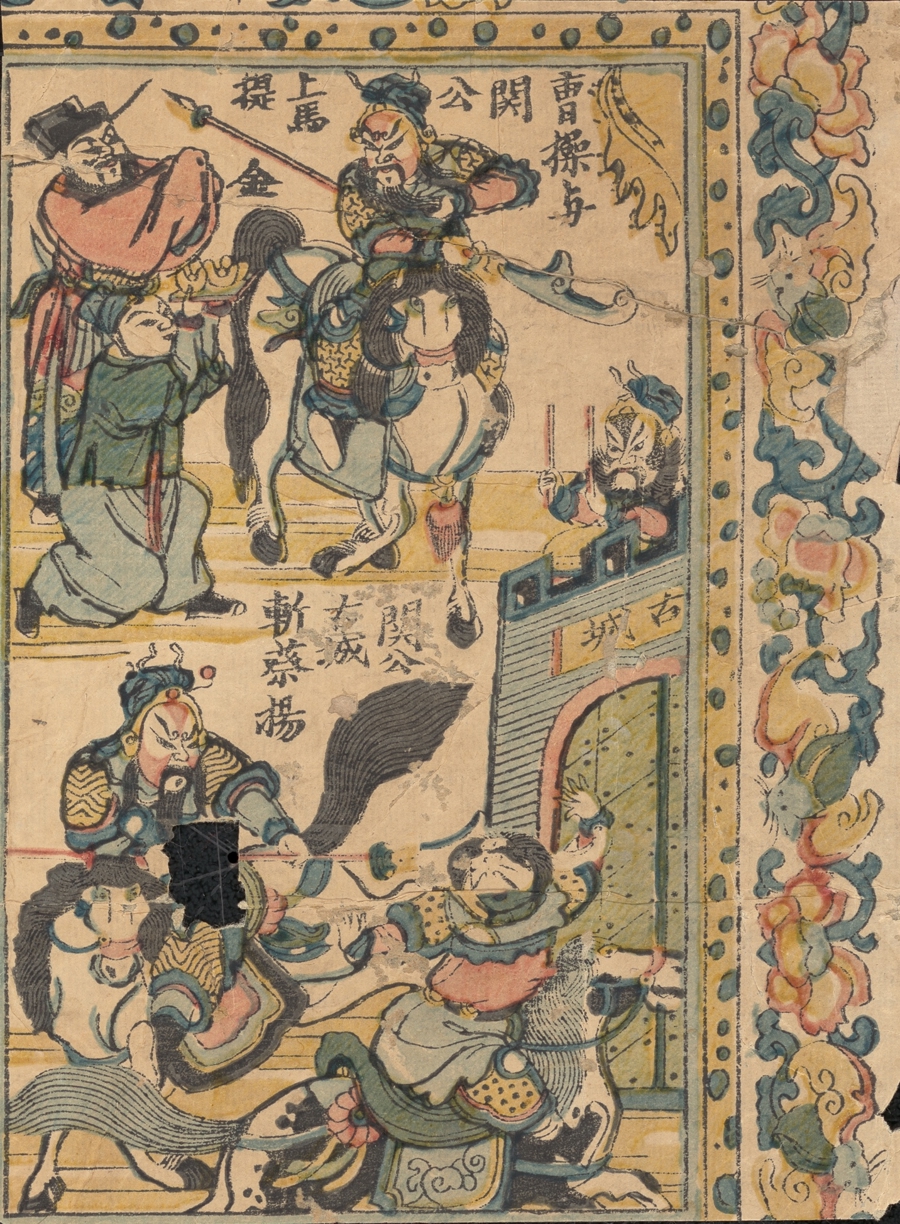 曹操与
関
公
上馬
提
金
古城
関公
古城
斬蔡揚